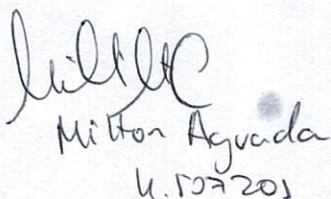 Milton Aguada
4.507201